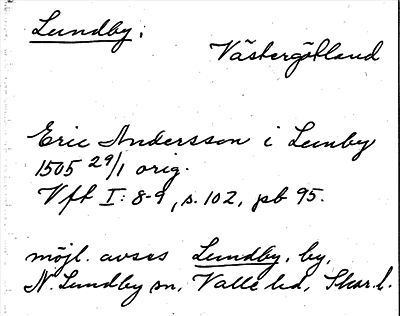 Lundby.
Västergötland
Eric Andersson i Lunby
1505 29/1 orig.
Vft I: 8-9, s. 102, pb 95.
möjl. avses Lundby, by,
N. Lundby sn, Valle hd, Skar. l.